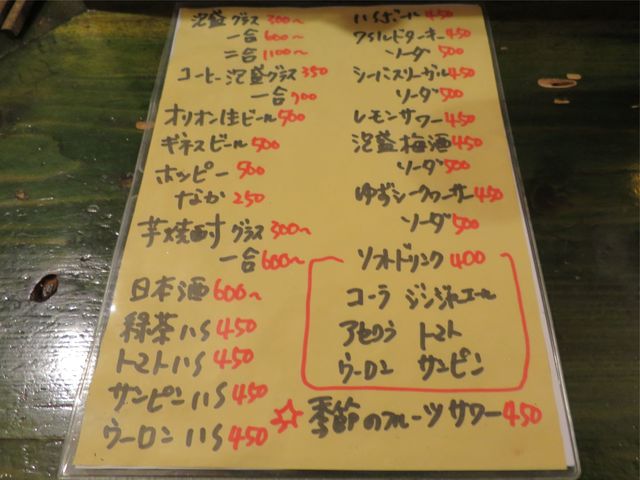 泡盛グラス 300〜
一合 600〜
二合 1100〜
コーヒー泡盛グラス 350
一合 700
オリオン生ビール 500
ギネスビール 500
ホッピー 500
なか 250
芋焼酎グラス 300〜
一合 600〜
日本酒 600〜
緑茶ハイ 450
トマトハイ 450
サンピンハイ 450
ウーロンハイ 450
ハイボール 450
ワイルドターキー 450
ソーダ 500
シーバスリーガル 450
ソーダ 500
レモンサワー 450
泡盛梅酒 450
ソーダ 500
ゆずシークワーサー 450
ソーダ 500
ソフトドリンク 400
コーラ ジンジャエール
アセロラ トマト
ウーロン サンピン
☆季節のフルーツサワー 450